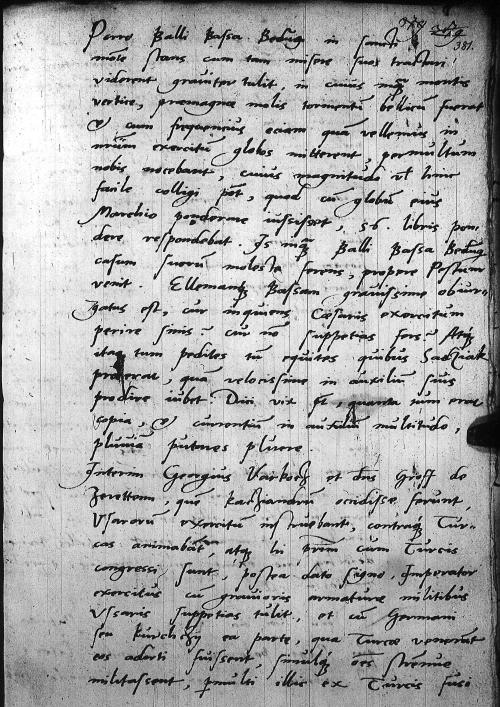 381.
Porro Balli Bassa Bedug in sancti
monte stans cum tam misere suos tractari
viderent graviter tulit, in cuius mq̃ montis
vertice, praemagnae molis tormentũ bellicũ fuerat
& cum frequentius eciam quã vellemus in
nrũm exercitũ globos mitterent, permultum
nobis nocebant, cuius magnitudo vl hinc
facile colligi põt, quod cũ globũ eius
Marchio ponderare iussisset, 56. libris pon
dere respondebat. Is mq̃ Balli Bassa Bedug
casum suorũ moleste ferens, propere Pestum
venit. Ellemanq̃ Bassam gravissime obiur-
gatus est, cur inquiens Caesaris exercitum
perire sinis? cur nõ suppetias fers? Atq̃
itaq̃ tum pedites tũ equites quibus Sadziak
praeerat, quã velocissime in auxiliũ suis
prodire iubet. Dici vix pt quanta tum erat
copia, & currentiũ in auxiliũ multitudo,
pluviã putares pluere.
Interim Georgius Warkoch et dñs Groff de
Zerettom, quẽ Kaczianerũ occidisse ferunt,
Vsarorũ exercitũ instruebant, contraq̃ Tur-
cas animabãt, atq̃ hi prĩm cum Turcis
congressi sunt, postea dato signo, Imperator
exercitus cũ gravioris armaturae militibus
Vssaris suppetias tulit, et cũ Germani
seu ea parte, qua Turcae venerãt
eos adorti fuissent, simulq̃ oẽs strenue
militassent, ꝑmulti illic ex Turcis fusi